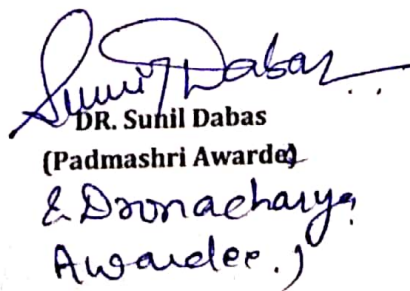 Sunil Dabas
DR. Sunil Dabas
(Padmashri Awarde)
& Dronacharya
Awardee.)